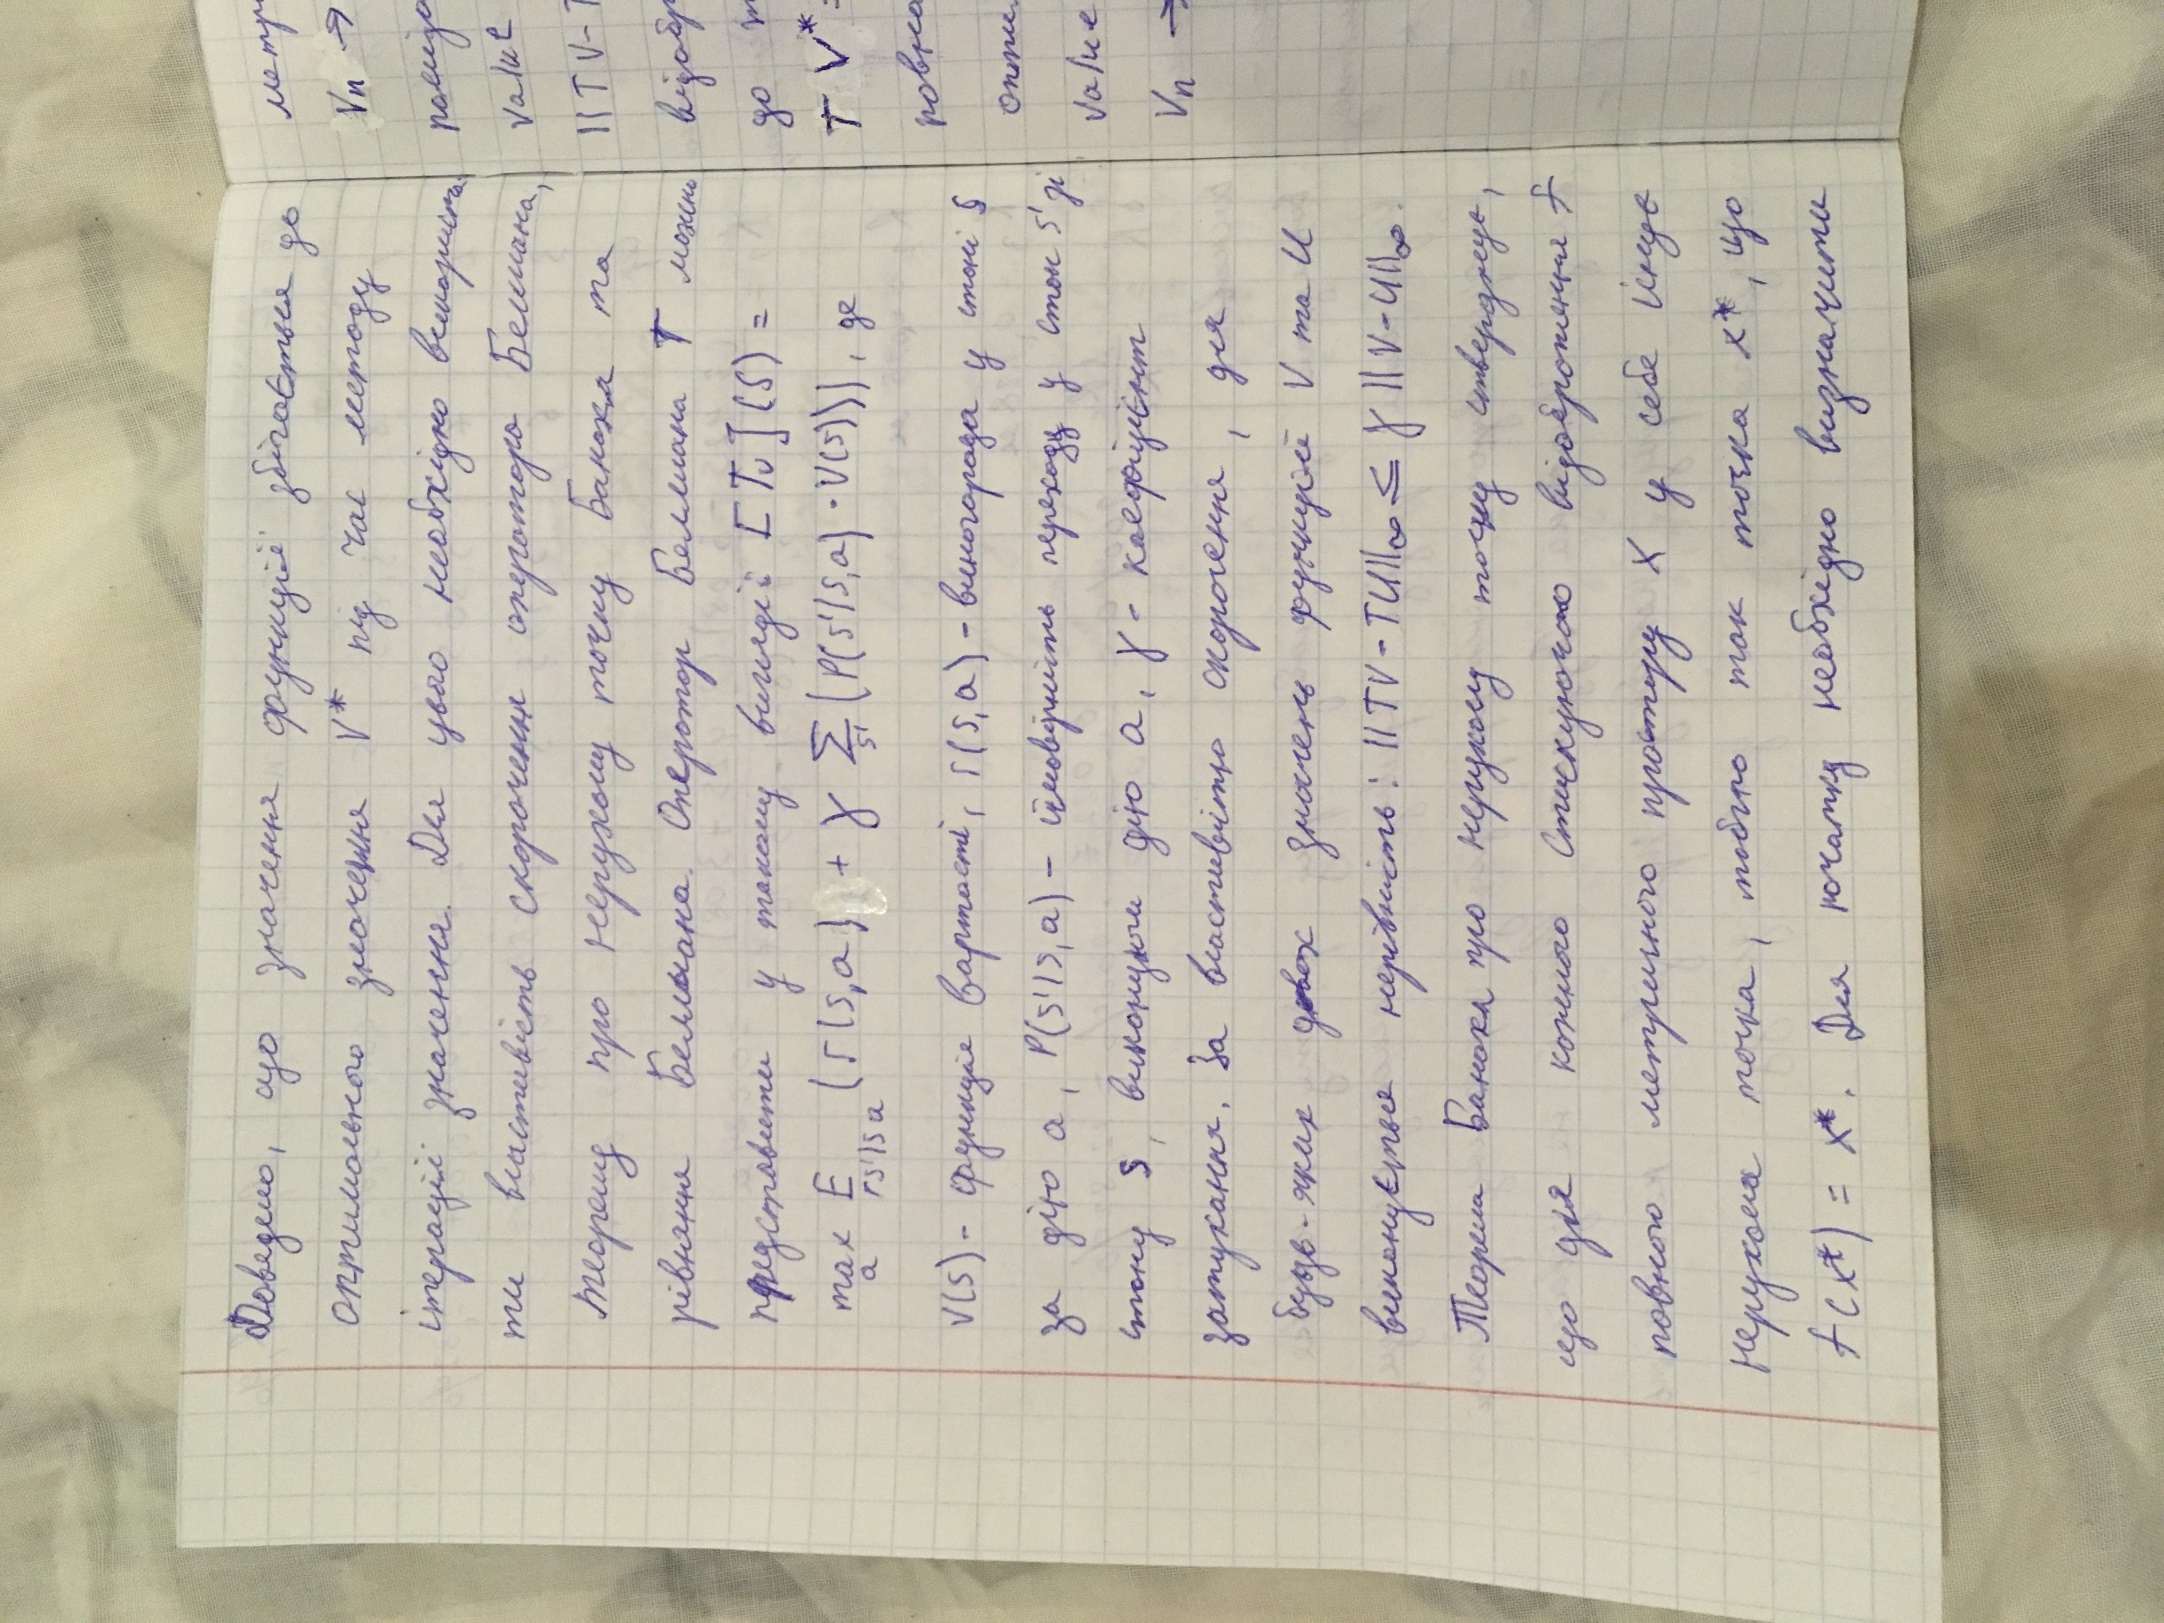 Доведемо, що значення функції збігається до
оптимального значення V* під час методу
ітерації значення. Для цього необхідно використа-
ти властивість скорочення оператора Белмана,
теорему про нерухому точку Банаха та
рівняння Белмана. Оператор Белмана T можна
представити у такому вигляді: [Tv](s) =
max E (r(s,a) + γ ∑ (P(s'|s,a) · V(s))), де
a rs'|s a s'
V(s) - функція вартості, r(s,a) - винагорода у стані s
за дію a, P(s'|s,a) - ймовірність переходу у стан s' зі
стану s, виконуючи дію a, γ - коефіцієнт
затухання. За властивістю скорочення, для
будь-яких двох значень функцій V та U
виконується нерівність: ||TV-TU||∞ ≤ γ ||V-U||∞.
Теорема Банаха про нерухому точку стверджує,
що для кожного стискуючого відображення f
повного метричного простору X у себе існує
нерухома точка, тобто така точка x*, що
f(x*) = x*. Для початку необхідно визначити
метри
Vn →
послідо
value
||TV-T
відобр
до
T V* =
рівня
оптим
value
Vn →